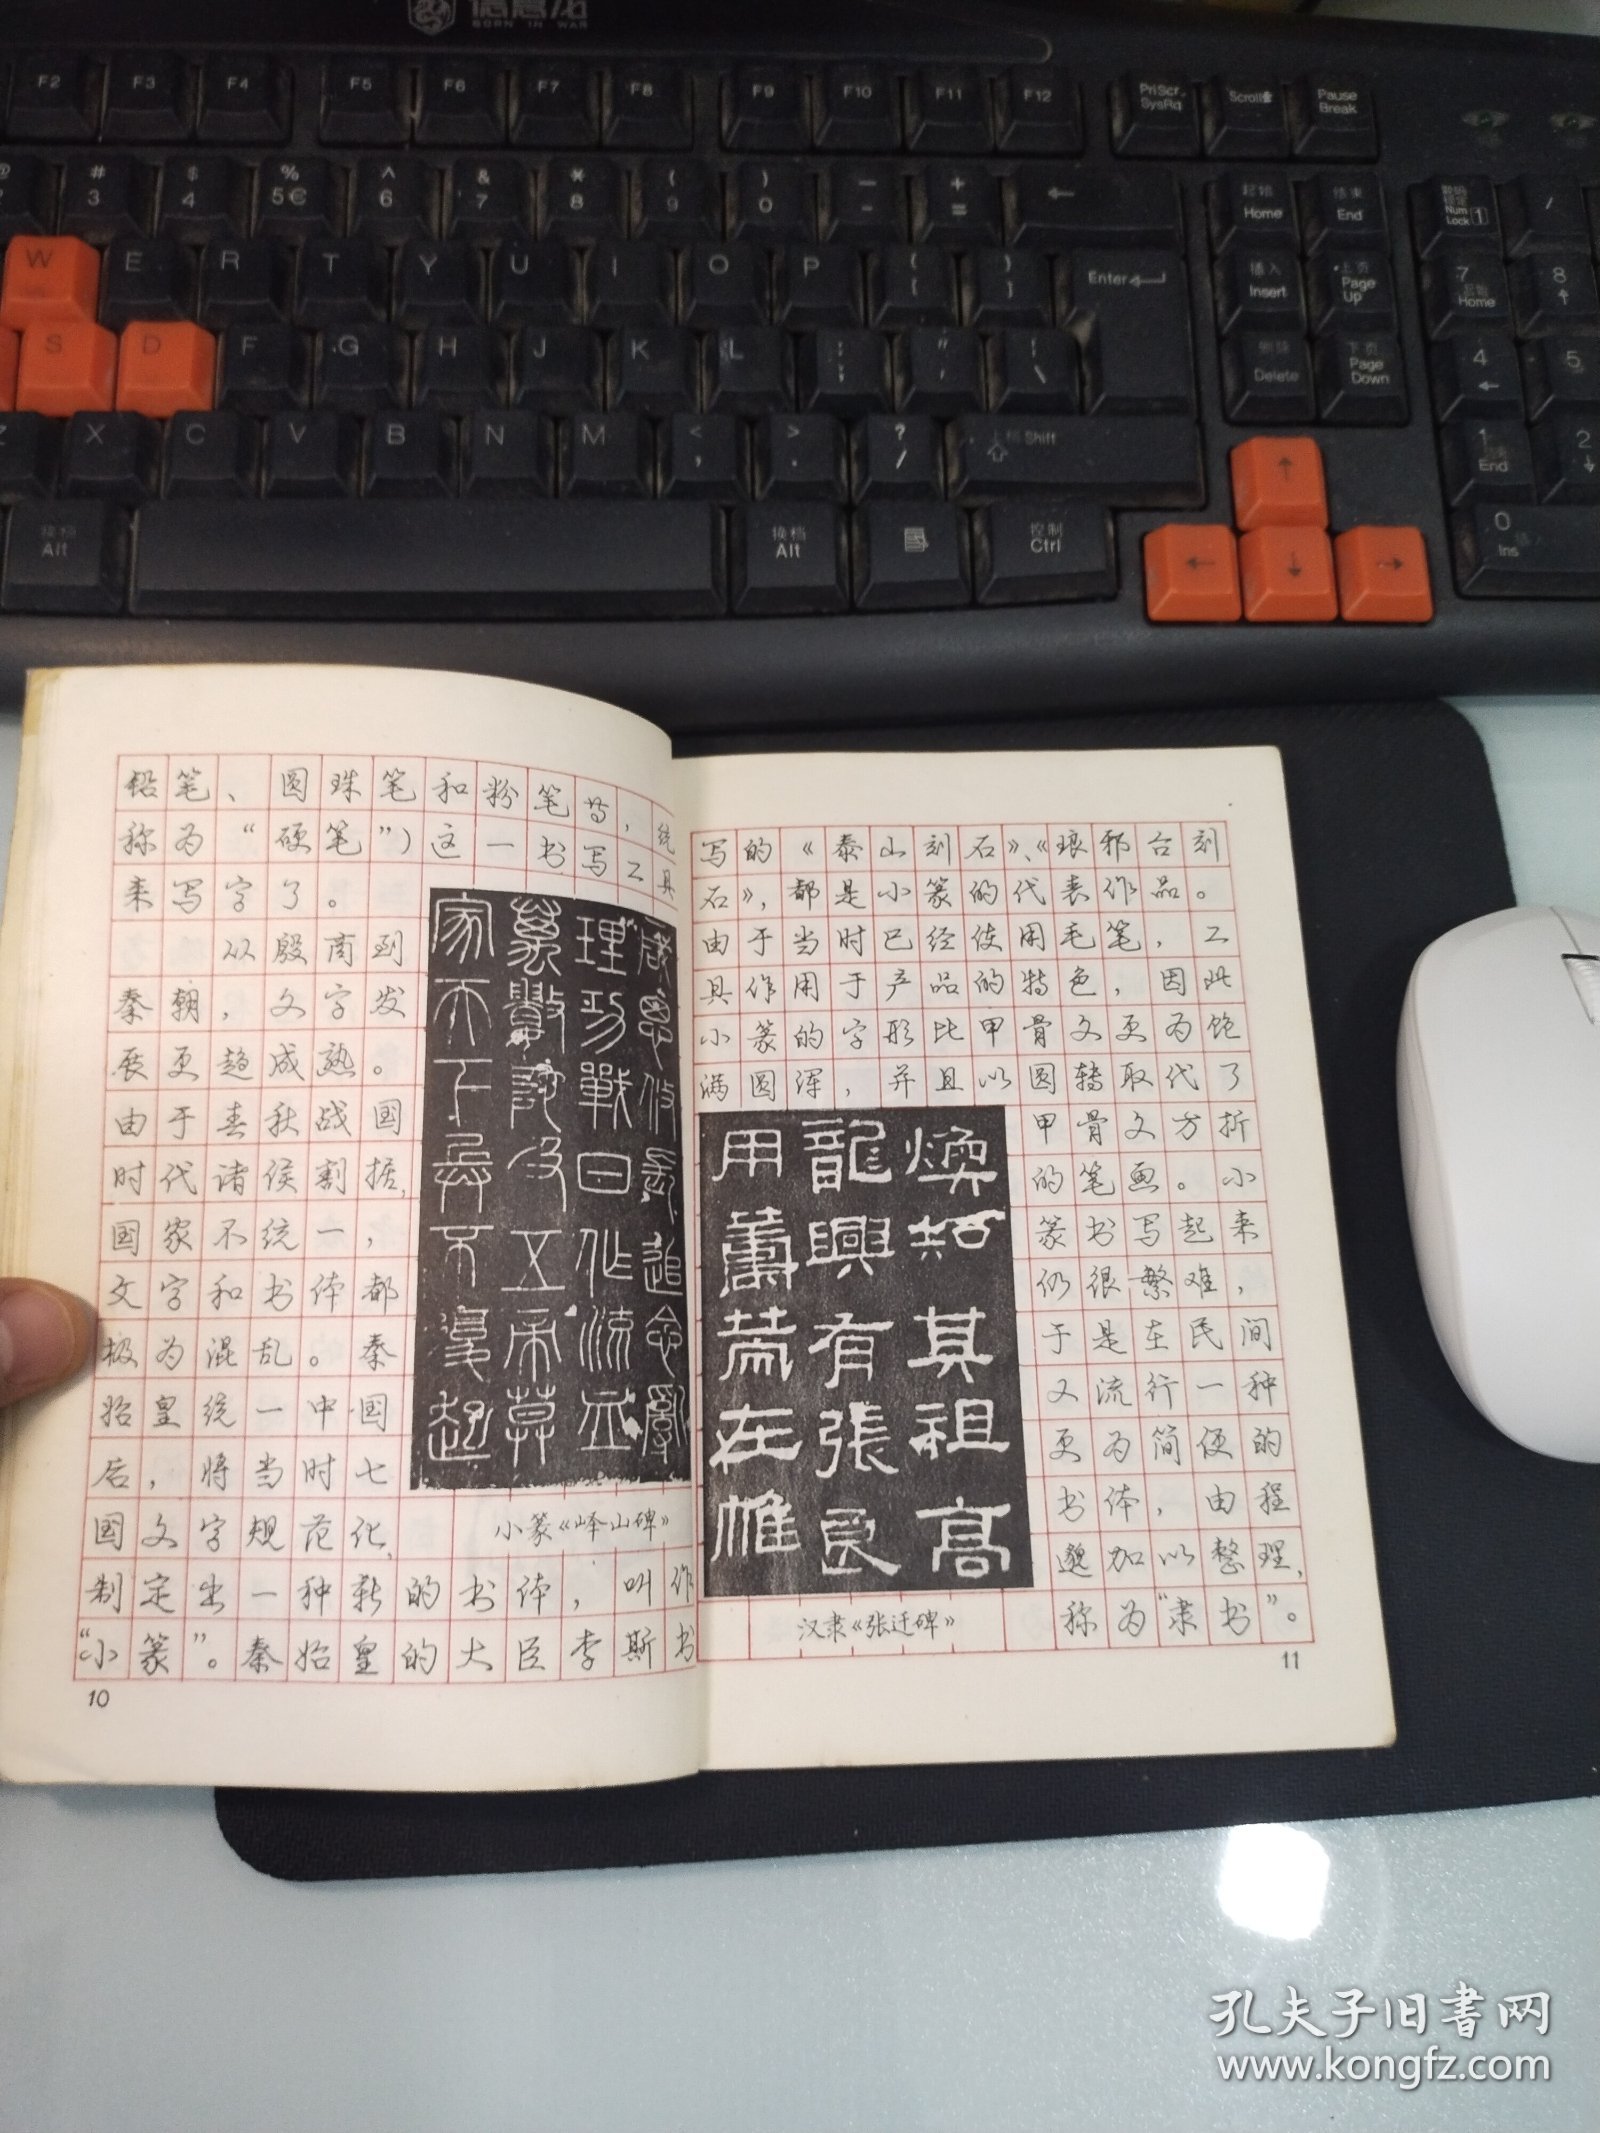 BORN IN WAR
F2 F3 F4 F5 F6 F7 F8 F9 F10 F11 F12 PriScr SysRq Scroll Pause Break
# 3 $ 4 % 5 € ^ 6 & 7 * 8 ( 9 ) 0 — - + = ← 起始 Home 结束 End 数码锁定 Num Lock 1 /
W E R T Y U I O P { [ } ] Enter 插入 Insert 上页 Page Up 7 起始 Home 8 ↑
S D F G H J K L : ; " ' | \ 删除 Delete 下页 Page Down 4 ← 5
Z X C V B N M < , > . ? / 上档 Shift ↑ 1 End 2 ↓
换档 Alt 换档 Alt 控制 Ctrl ← ↓ → 0 Ins
铅笔、圆珠笔和粉笔等,统
称为“硬笔”)这一书写工具
来写字了。
从殷商到
秦朝,文字发
展更趋成熟。
由于春秋战国
时代诸侯割据,
国家不统一,
文字和书体都
极为混乱。秦
始皇统一中国
后,将当时七
国文字规范化,
制定出一种新的书体,叫作
“小篆”。秦始皇的大臣李斯书
理功戰日作流血
萬數陀及五帝莫
家天下兵不復起
小篆《峄山碑》
10
写的《泰山刻石》、《琅邪台刻
石》,都是小篆的代表作品。
由于当时已经使用毛笔,工
具作用于产品的特色,因此
小篆的字形比甲骨文更为饱
满圆浑,并且以圆转取代了
甲骨文方折
的笔画。小
篆书写起来
仍很繁难,
于是在民间
又流行一种
更为简便的
书体,由程
邈加以整理,
称为“隶书”。
煥知其祖高
龍興有張良
用籌策在帷
汉隶《张迁碑》
11
孔夫子旧书网
www.kongfz.com